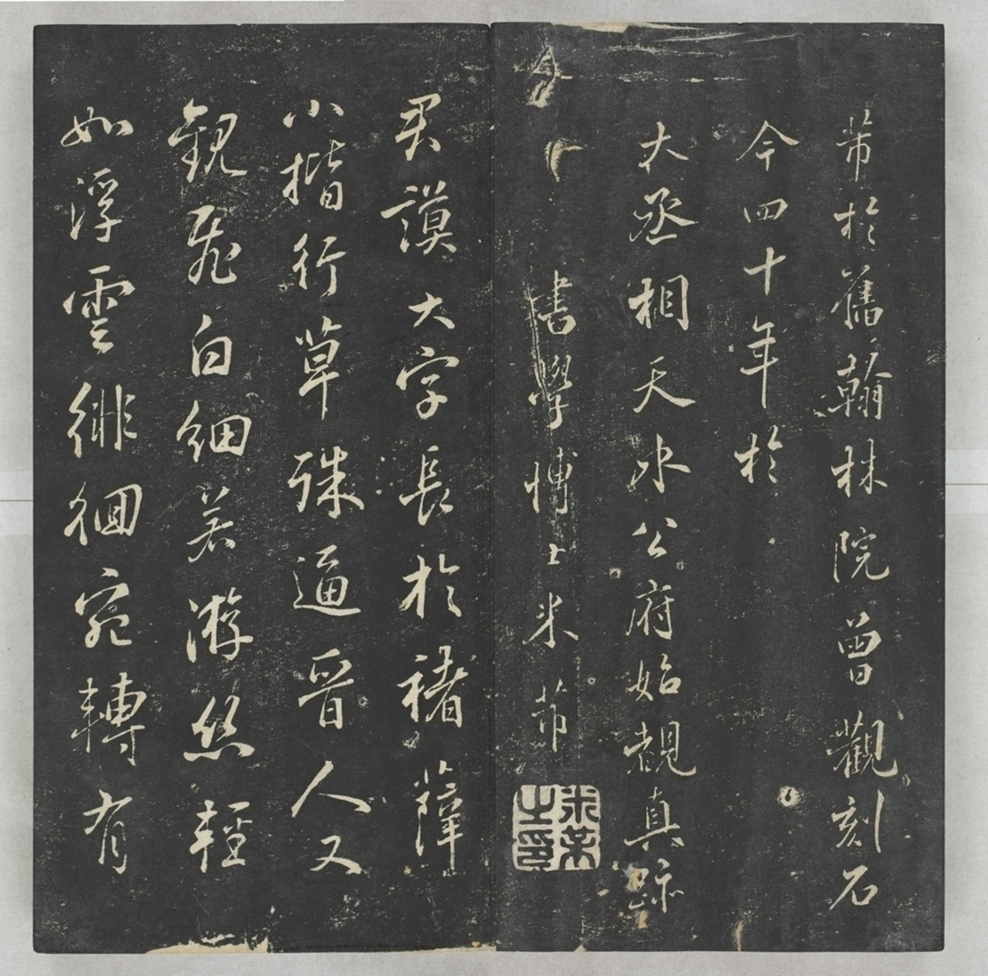 芾於舊翰林院曾觀刻石
今四十年於
大丞相天水公府始觀真跡
書學博士米芾
米芾之印
君謨大字長於褚薛
小楷行草殊逼晉人又
觀飛白細若游絲輕
如浮雲徘徊宛轉有